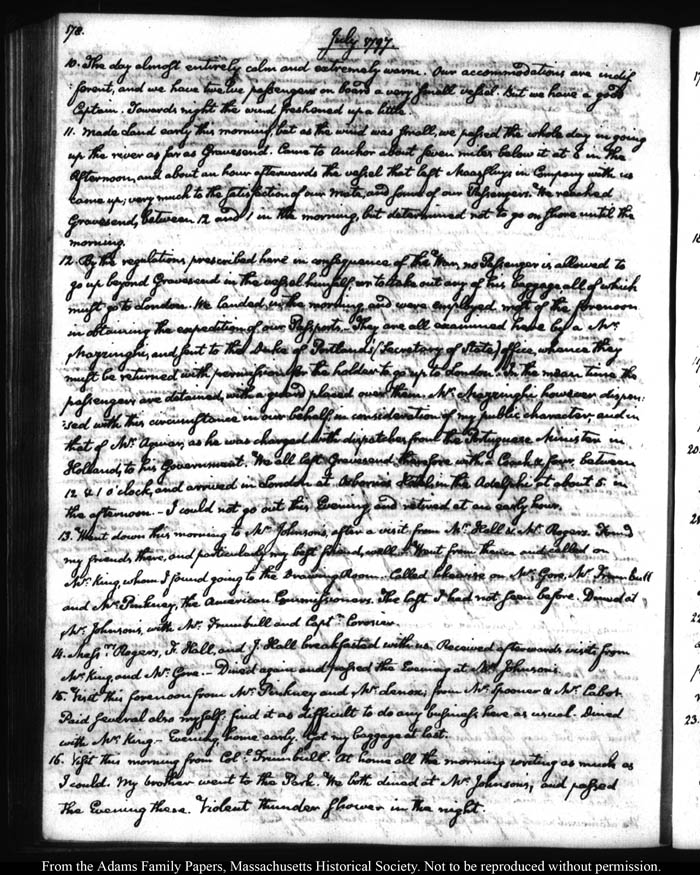 178.
July 1797.
10. The day almost entirely calm and extremely warm. Our accommodations are indif-
:ferent, and we have twelve passengers on board a very small vessel. But we have a good
Captain. Towards night the wind freshened up a little.
11. Made Land early this morning, but as the wind was small, we passed the whole day in going
up the river as far as Gravesend. Came to anchor about seven miles below it at 5 in the
Afternoon, and about an hour afterwards the vessel that left Maassluys in Company with us
came up; very much to the satisfaction of our mate, and some of our Passengers. We reached
Gravesend, between 12 and 1 in the morning, but determined not to go on shore until the
morning.
12. By the regulations prescribed here in consequence of the War, no Passenger is allowed to
go up beyond Gravesend in the vessel himself, or to take out any of his baggage all of which
must go to London. We landed in the morning, and were employed most of the forenoon
in obtaining the expedition of our Passports. They are all examined here by a Mr.
Mazzinghi, and sent to the Duke of Portland's (Secretary of State) office, whence they
must be returned with permission for the holder to go up to London. In the mean time the
passengers are detained, with a guard placed over them. Mr. Mazzinghi however dispen-
:sed with this circumstance in our behalf, in consideration of my public character, and in
that of Mr. Aguiar, as he was charged with dispatches from the Portuguese Minister in
Holland, to his Government. We all left Gravesend therefore with a Coach & four, between
12 & 1 o'clock, and arrived in London at Osborne's Hotel in the Adelphi at about 5 in
the afternoon. - I could not go out this Evening and retired at an early hour.
13. Went down this morning to Mr. Johnson's, after a visit from Mr. Hall & Mr. Rogers. Found
my friends there, and particularly my best friend, well. Went from thence and called on
Mr. King, whom I found going to the Drawing Room. Called likewise on Mr. Gore, Mr. Trumbull
and Mr. Pinkney, the American Commissioners. The last I had not seen before. Dined at
Mr. Johnson's, with Mr. Trumbull and Captn.
14. Messrs. Rogers, F. Hall, and J. Hall breakfasted with us. Received afterwards visits from
Mr. King, and Mr. Gore. - Dined again and passed the Evening at Mr. Johnson's.
15. Visit this forenoon from Mr. Pinkney and Mr. Lenox; from Mr. Spooner & Mr. Cabot.
Paid several also myself. find it as difficult to do any business here as usual. Dined
with Mr. King. - Evening, home early. Got my baggage at last.
16. Visit this morning from Coll. Trumbull. At home all the morning writing as much as
I could. My brother went to the Park. We both dined at Mr. Johnson's, and passed
the Evening there. Violent thunder shower in the night.
From the Adams Family Papers, Massachusetts Historical Society. Not to be reproduced without permission.